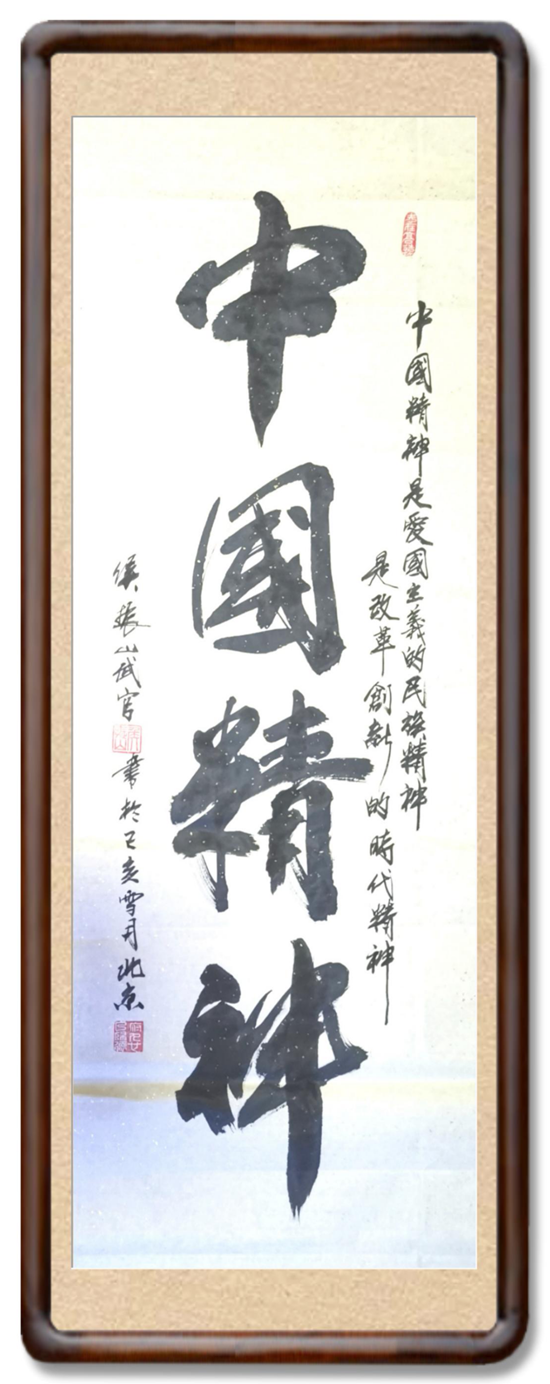 中國精神是愛國主義的民族精神
是改革創新的時代精神
中國精神
侯振山武官
書於己亥雪月北京